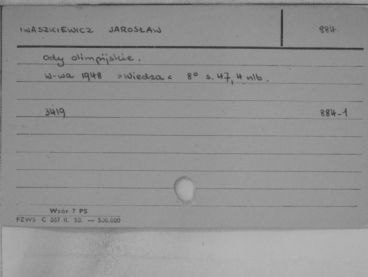 IWASZKIEWICZ JAROSŁAW 884
Ody olimpijskie.
W-wa 1948 »Wiedza« 8° s. 47, 4 nlb.
3419 884-1
Wzór 7 PS
PZWS C 357 II. 50. — 500.000